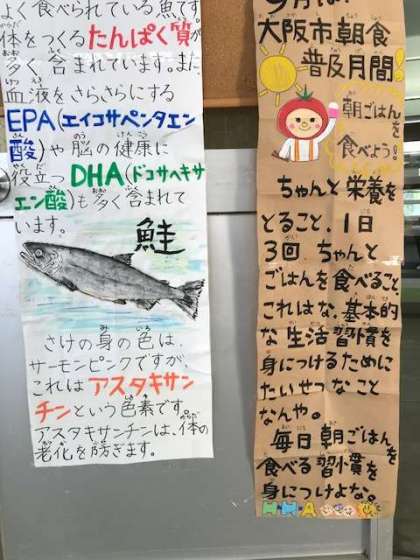 よく食べられている魚です。
体をつくるたんぱく質が
多く含まれています。また
血液をさらさらにする
EPA(エイコサペンタエン
酸)や脳の健康に
役立つDHA(ドコサヘキサ
エン酸)も多く含まれて
います。
鮭
さけの身の色は、
サーモンピンクですが、
これはアスタキサン
チンという色素です。
アスタキサンチンは、体の
老化を防ぎます。
9月は!
大阪市朝食
普及月間!
朝ごはんを
食べよう!
ちゃんと栄養を
とること、1日
3回、ちゃんと
ごはんを食べること
これはな、基本的
な生活習慣を
身につけるために
たいせつなこと
なんや。
毎日朝ごはんを
食べる習慣を
身につけよな。